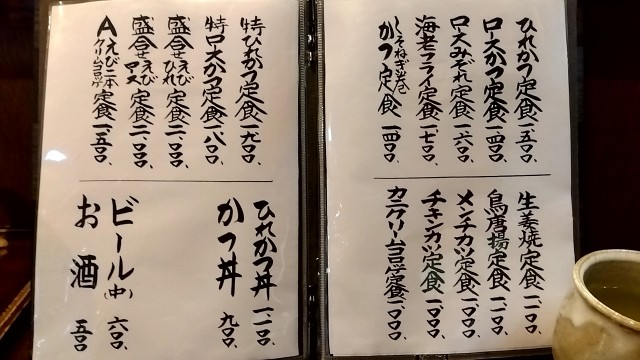 ひれかつ定食 一、五〇〇、
ロースかつ定食 一、四〇〇、
ロースみぞれ定食 一、六〇〇、
海老フライ定食 一、七〇〇、
しそねぎ巻かつ定食 一、四〇〇、
生姜焼定食 一、一〇〇、
鳥唐揚定食 一、一〇〇、
メンチカツ定食 一、〇〇〇、
チキンカツ定食 一、〇〇〇、
カニクリーム台コロ定食 一、〇〇〇、
特ひれかつ定食 一、九〇〇、
特ロースかつ定食 一、八〇〇、
盛合せ えび ひれ 定食 二、〇〇〇、
盛合せ えび ロース 定食 二、〇〇〇、
A えび二本 クリーム台コロ 定食 一、五〇〇、
ひれかつ丼 一、一〇〇、
かつ丼 九〇〇、
ビール(中) 六〇〇、
お酒 五〇〇